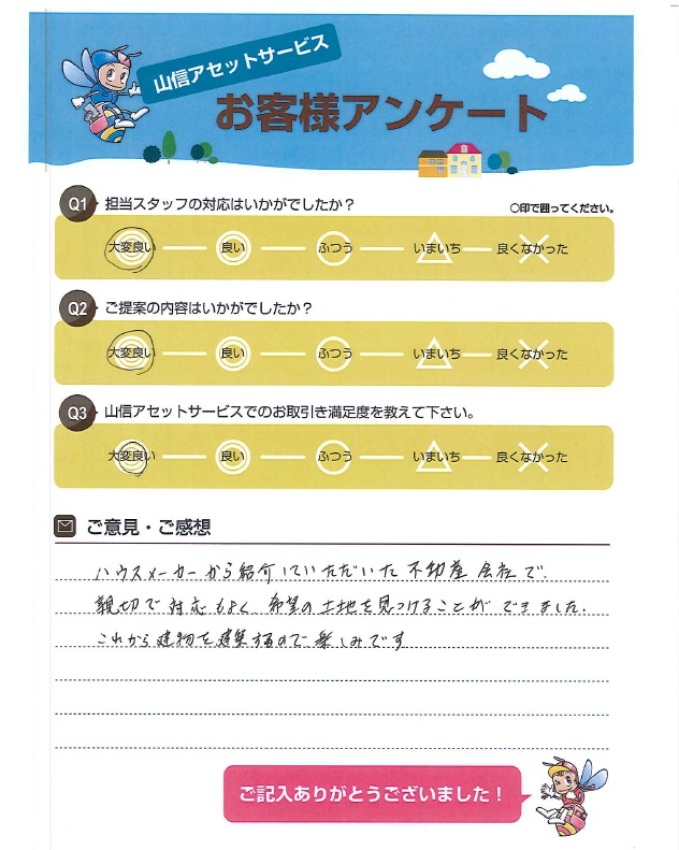 山信アセットサービス
お客様アンケート
Q1 担当スタッフの対応はいかがでしたか？ ○印で囲ってください。
大変良い 良い ふつう いまいち 良くなかった
Q2 ご提案の内容はいかがでしたか？
大変良い 良い ふつう いまいち 良くなかった
Q3 山信アセットサービスでのお取引き満足度を教えて下さい。
大変良い 良い ふつう いまいち 良くなかった
ご意見・ご感想
ハウスメーカーから紹介していただいた不動産会社で、
親切で対応もよく、希望の土地を見つけることができました。
これから建物を建築するので、楽しみです
ご記入ありがとうございました！